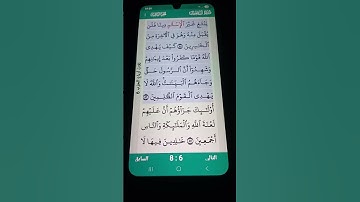 يَبۡتَغِ غَيۡرَ ٱلۡإِسۡلَٰمِ دِينٗا فَلَن
يُقۡبَلَ مِنۡهُ وَهُوَ فِي ٱلۡأٓخِرَةِ مِنَ
ٱلۡخَٰسِرِينَ ۝ كَيۡفَ يَهۡدِي
ٱللَّهُ قَوۡمٗا كَفَرُواْ بَعۡدَ إِيمَٰنِهِمۡ
وَشَهِدُوٓاْ أَنَّ ٱلرَّسُولَ حَقّٞ
وَجَآءَهُمُ ٱلۡبَيِّنَٰتُۚ وَٱللَّهُ لَا
يَهۡدِي ٱلۡقَوۡمَ ٱلظَّٰلِمِينَ ۝
أُوْلَٰٓئِكَ جَزَآؤُهُمۡ أَنَّ عَلَيۡهِمۡ
لَعۡنَةَ ٱللَّهِ وَٱلۡمَلَٰٓئِكَةِ وَٱلنَّاسِ
أَجۡمَعِينَ ۝ خَٰلِدِينَ فِيهَا لَا
التالي
8:6
السابق